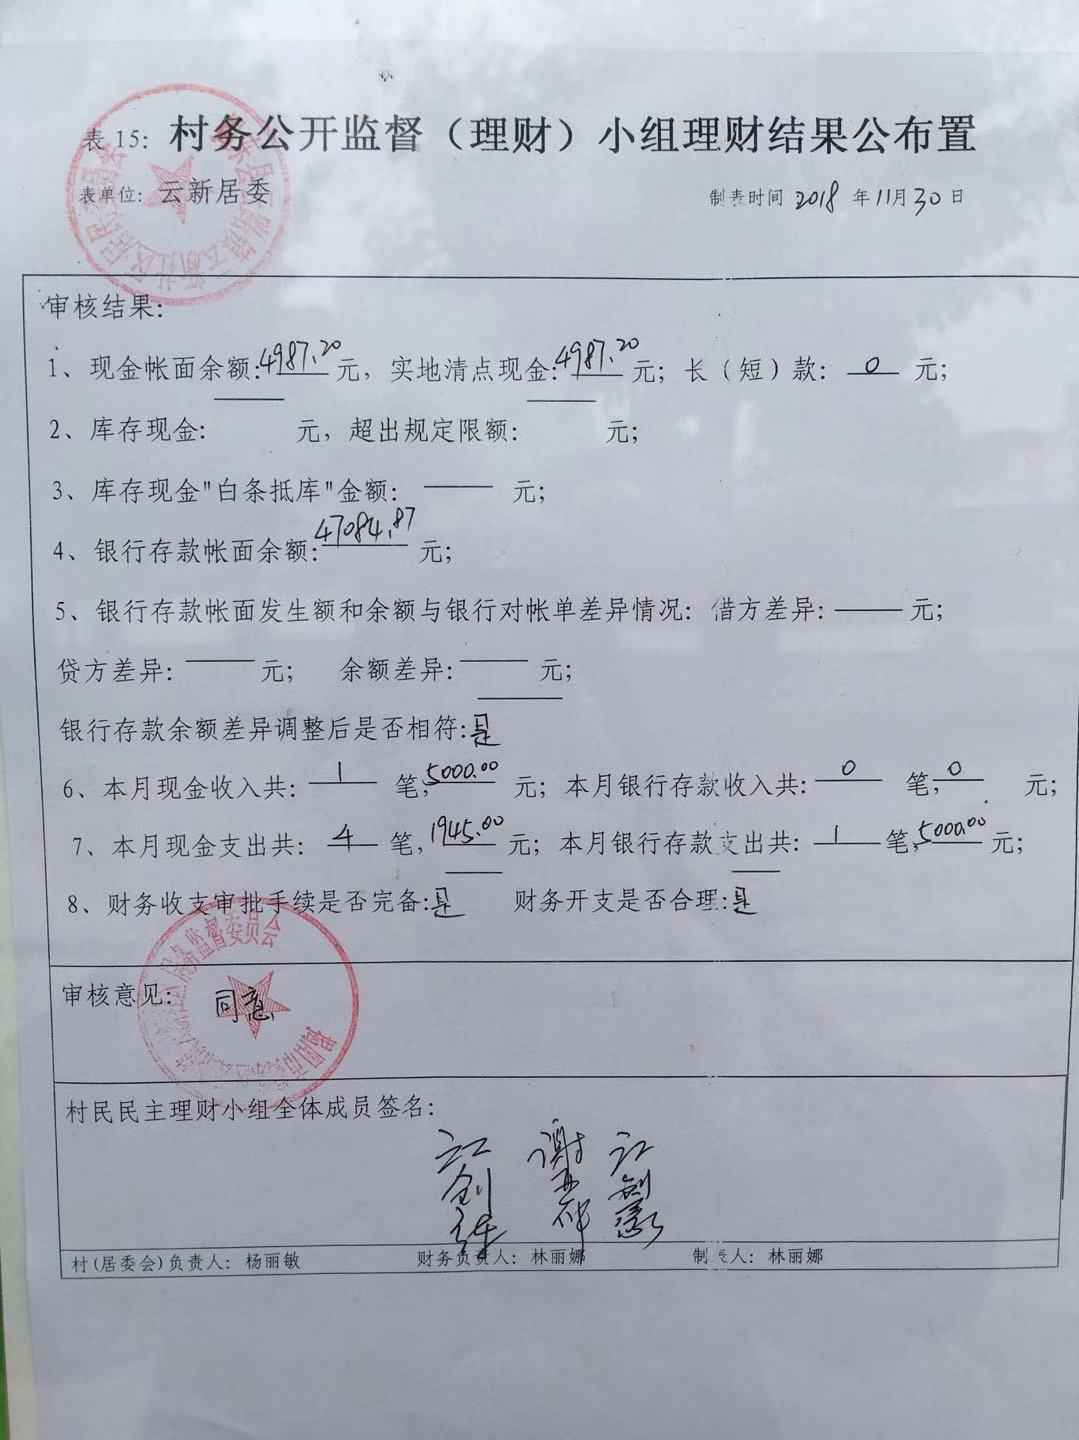 表15：村务公开监督（理财）小组理财结果公布置
表单位：云新居委 制表时间 2018 年 11月 30 日
审核结果：
1、现金帐面余额:4987.20元，实地清点现金:4987.20元；长（短）款：0 元；
2、库存现金： 元，超出规定限额： 元；
3、库存现金"白条抵库"金额： 元；
4、银行存款帐面余额:47084.87元；
5、银行存款帐面发生额和余额与银行对帐单差异情况：借方差异: 元；
贷方差异: 元； 余额差异: 元；
银行存款余额差异调整后是否相符:是
6、本月现金收入共：1 笔,5000.00 元；本月银行存款收入共：0 笔,0 元；
7、本月现金支出共：4 笔,1945.00元；本月银行存款支出共：1 笔,5000.00元；
8、财务收支审批手续是否完备:是 财务开支是否合理:是
居务监督委员会
审核意见： 同意
村民民主理财小组全体成员签名：
村(居委会)负责人：杨丽敏 财务负责人：林丽娜 制表人：林丽娜